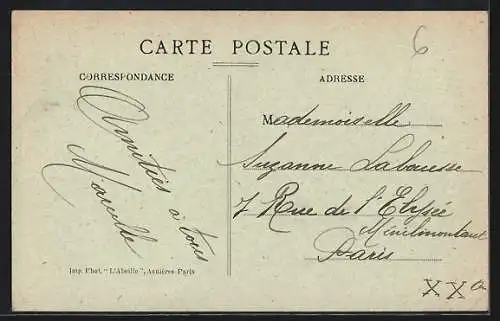 CARTE POSTALE
6
CORRESPONDANCE
ADRESSE
Amitiés à tous
Marcelle
Mademoiselle
Suzanne Labousse
7 Rue de l'Elysée
Ménilmontant
Paris
Imp. Phot. "L'Abeille", Asnières-Paris
XX